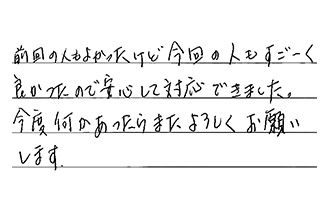 前回の人もよかったけど今回の人もすごーく
良かったので安心して対応できました。
今度何かあったらまたよろしくお願い
します.